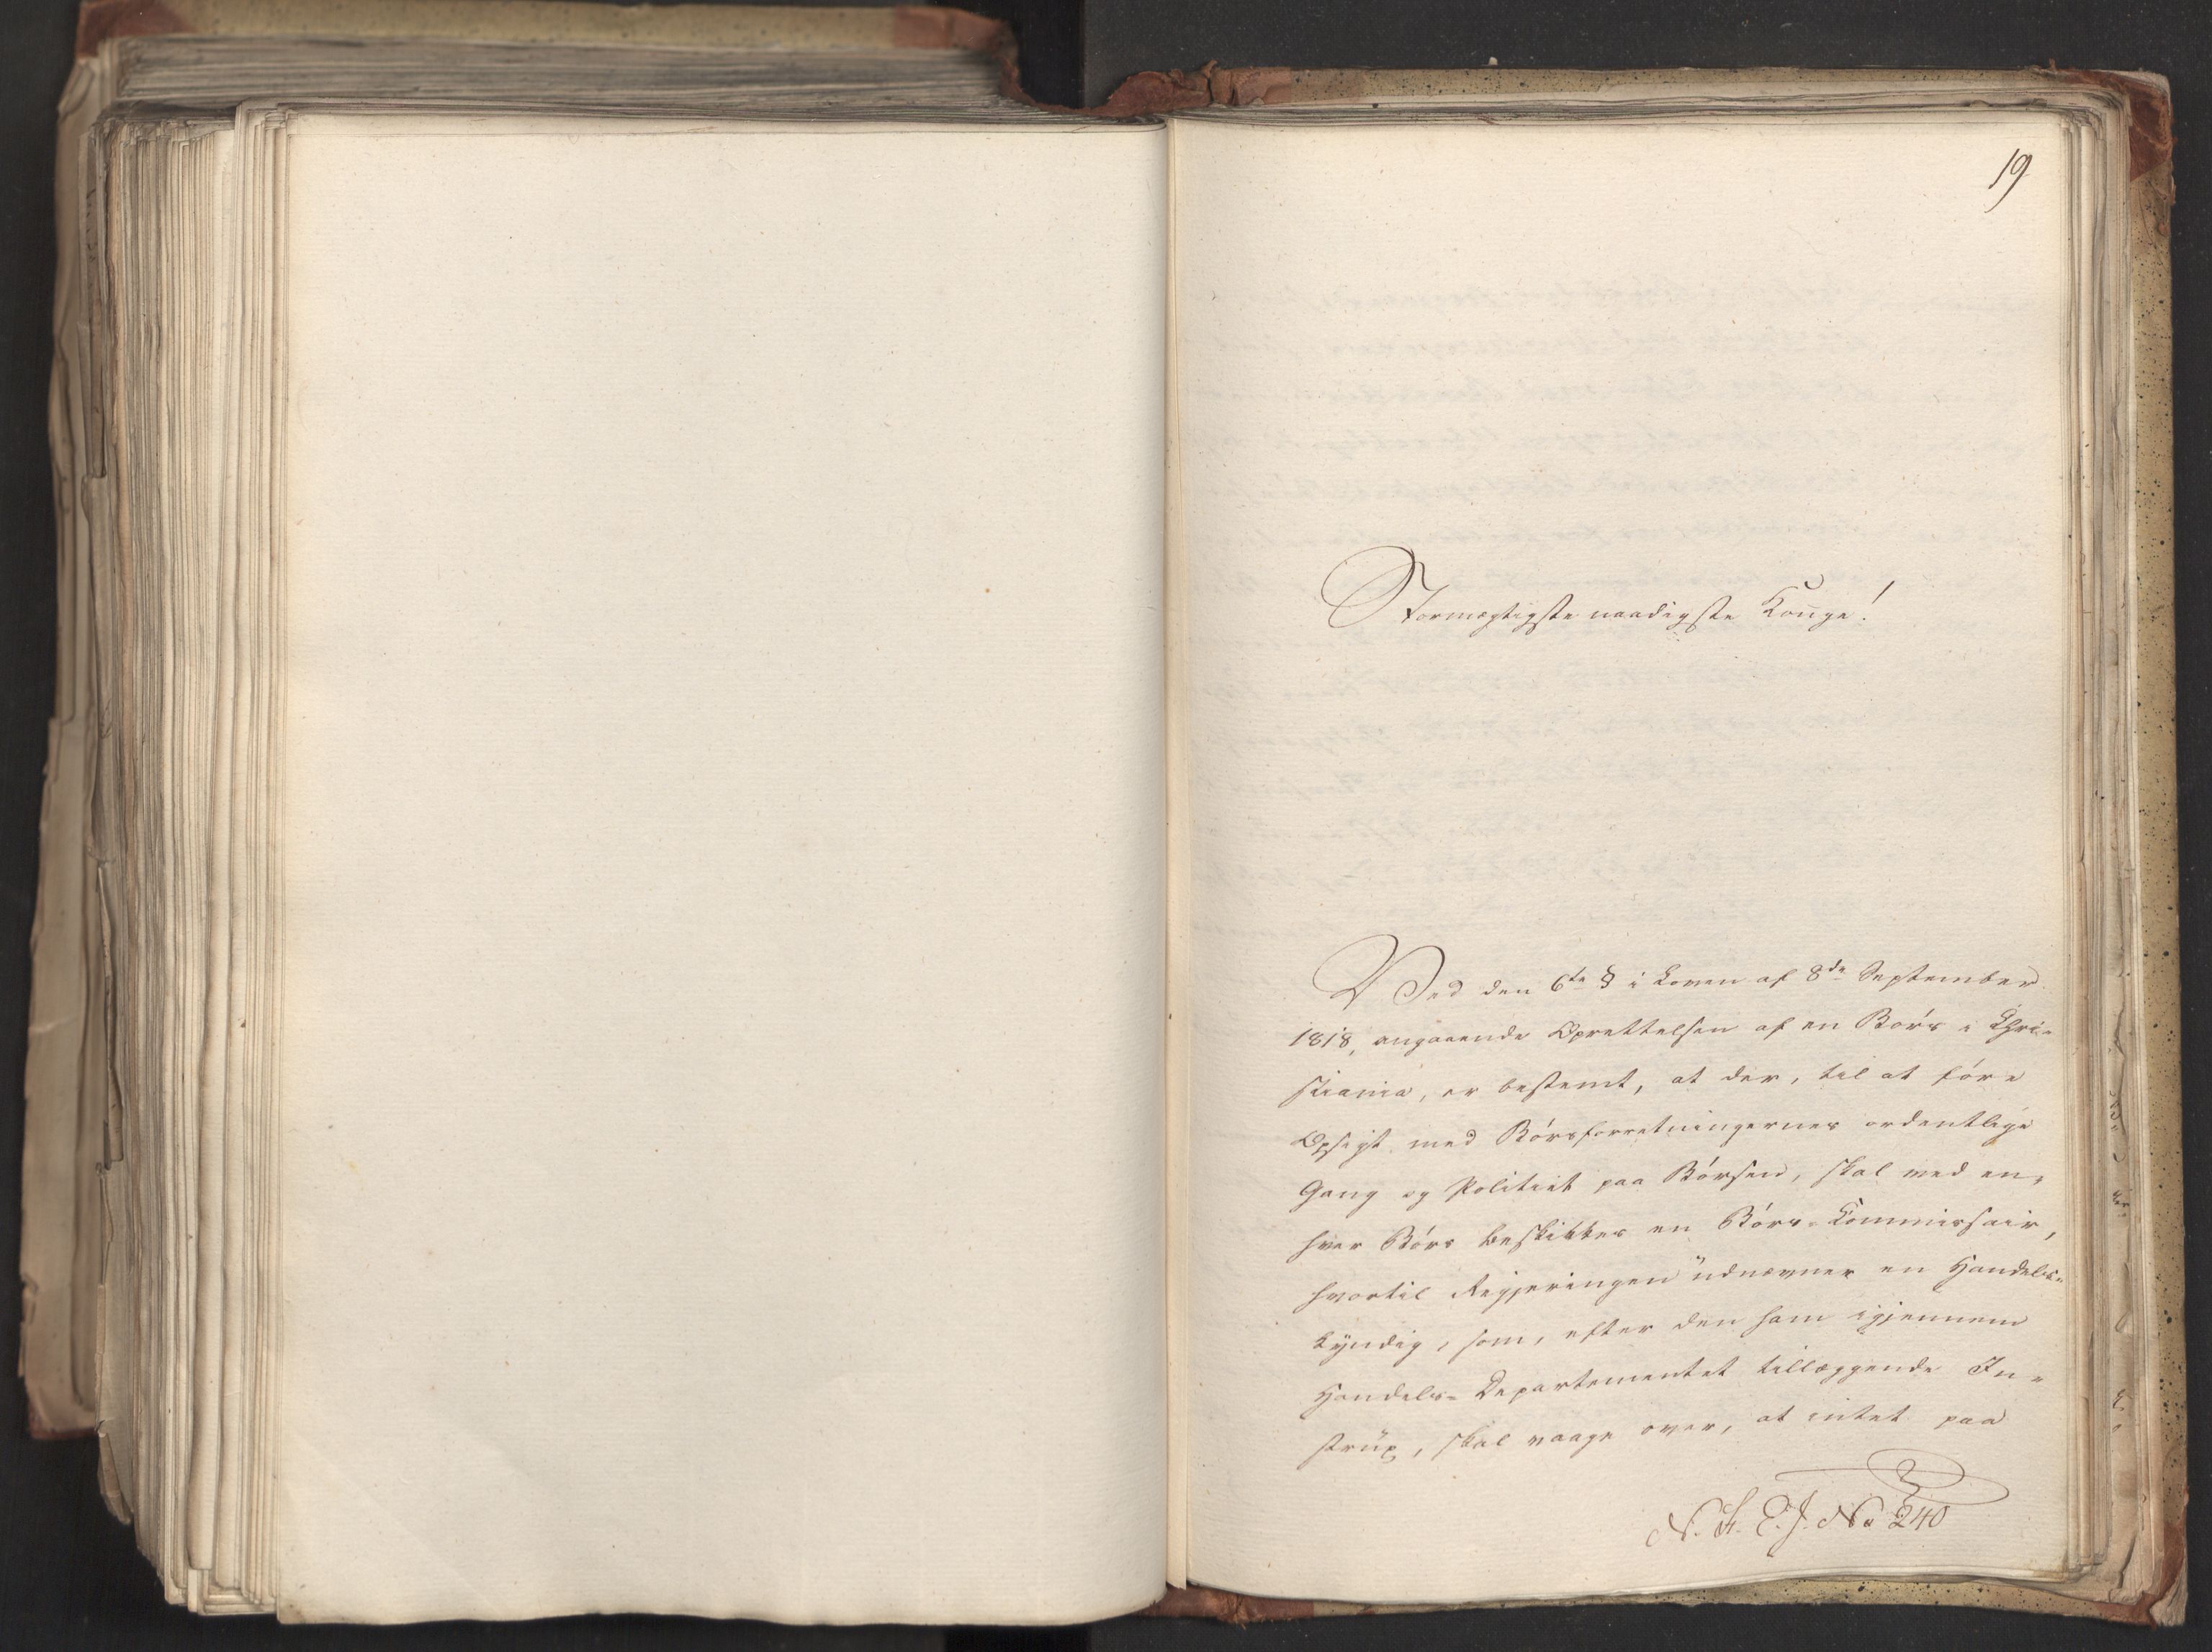 19
Stormægtigste naadigste Konge!
Ved den 6te § i Loven af 8de September
1818, angaaende Oprettelsen af en Börs i Chri-
stiania, er bestemt, at der, til at före
Opsigt med Börsforretningernes ordentlige
Gang og Politiet paa Börsen, skal ved en-
hver Börs beskikkes en Börs-Commissair,
hvortil Regjeringen udnævner en Handels-
kyndig, som, efter den ham igjennem
Handels-Departementet tillæggende In-
strux, skal vaage over, at intet paa
No 240